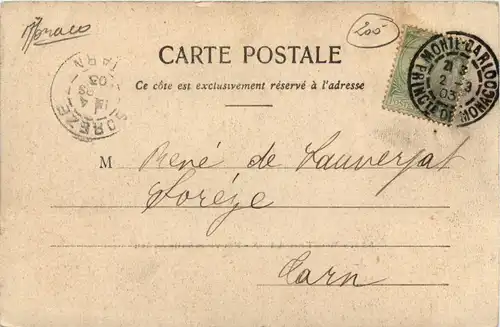 Monaco
200
CARTE POSTALE
Ce côte est exclusivement réservé à l'adresse
MONTE-CARLO
2 - 3
03
PRINCTE DE MONACO
SORÈZE
TARN
03
M René de Lauverjat
Sorèze
Tarn